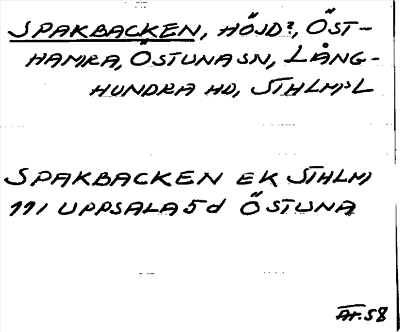 SPAKBACKEN, HÖJD?, ÖST-
HAMRA, ÖSTUNA SN, LÅNG-
HUNDRA HD, STHLMS L
SPAKBACKEN EK STHLM
111 UPPSALA 5d ÖSTUNA
AT.58